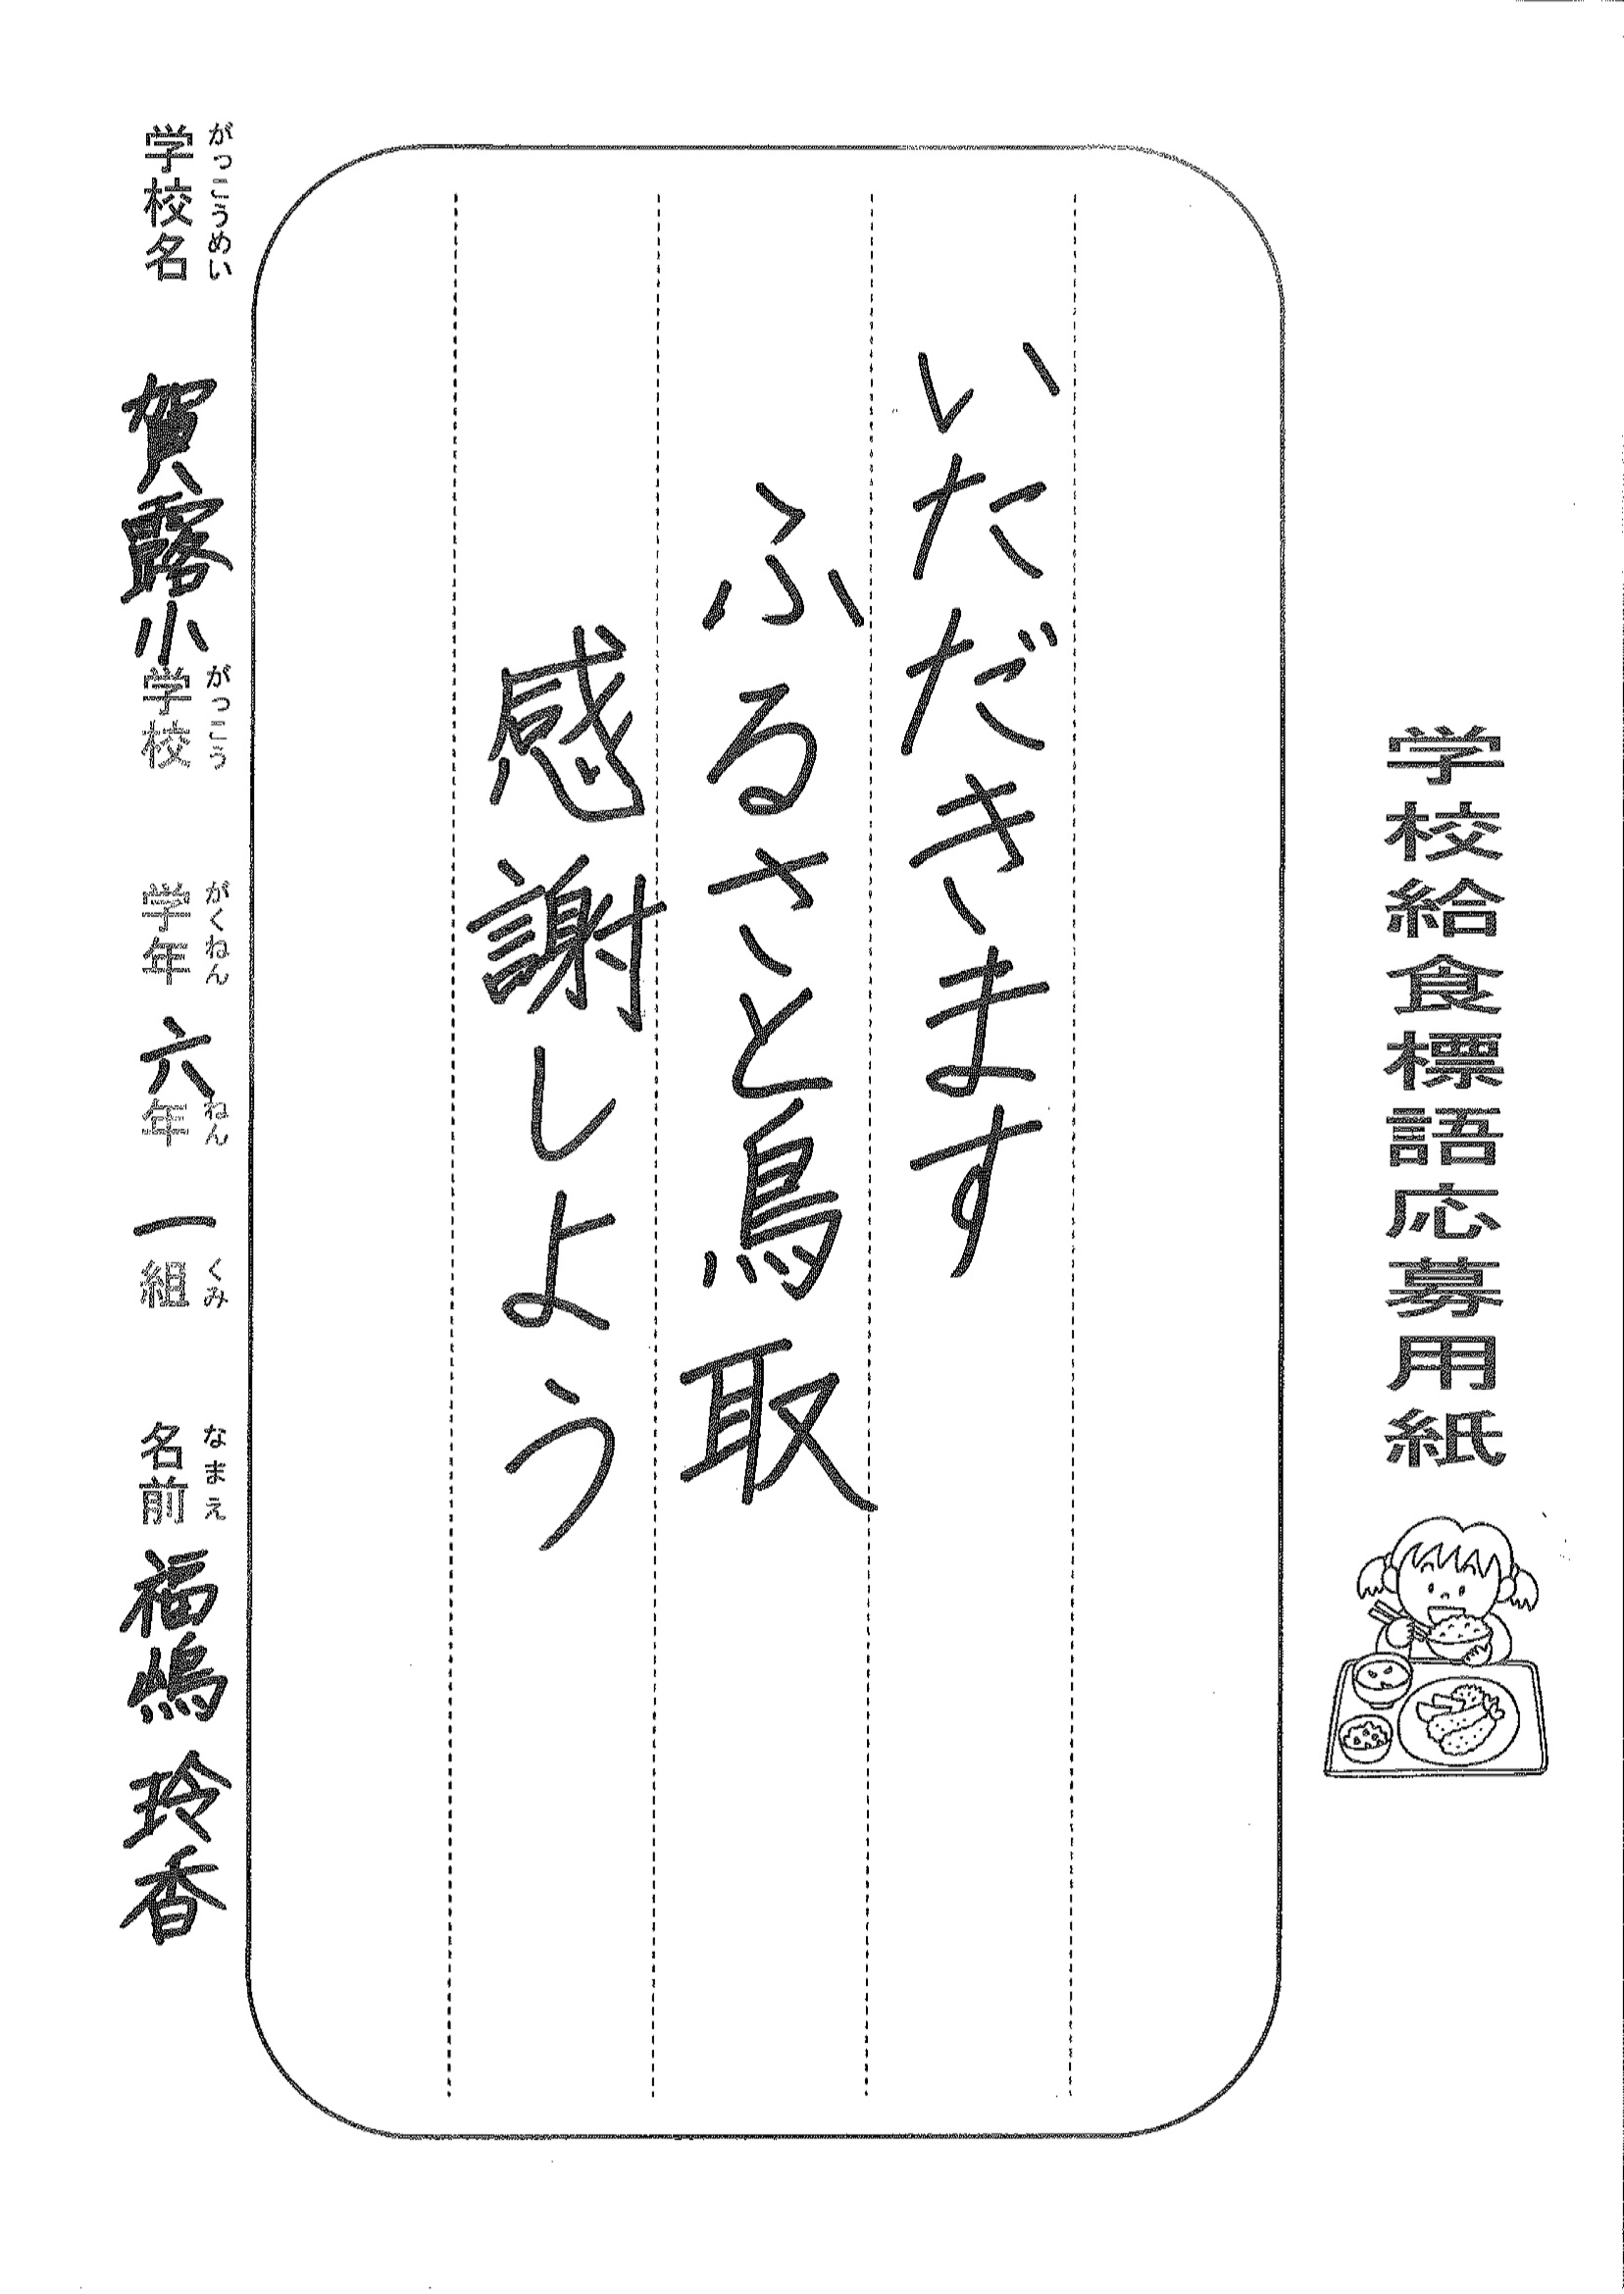 学校給食標語応募用紙
いただきます
ふるさと鳥取
感謝しよう
がっこうめい がっこう がくねん ねん くみ なまえ
学校名 賀露小学校 学年 六年 一組 名前 福嶋 玲香